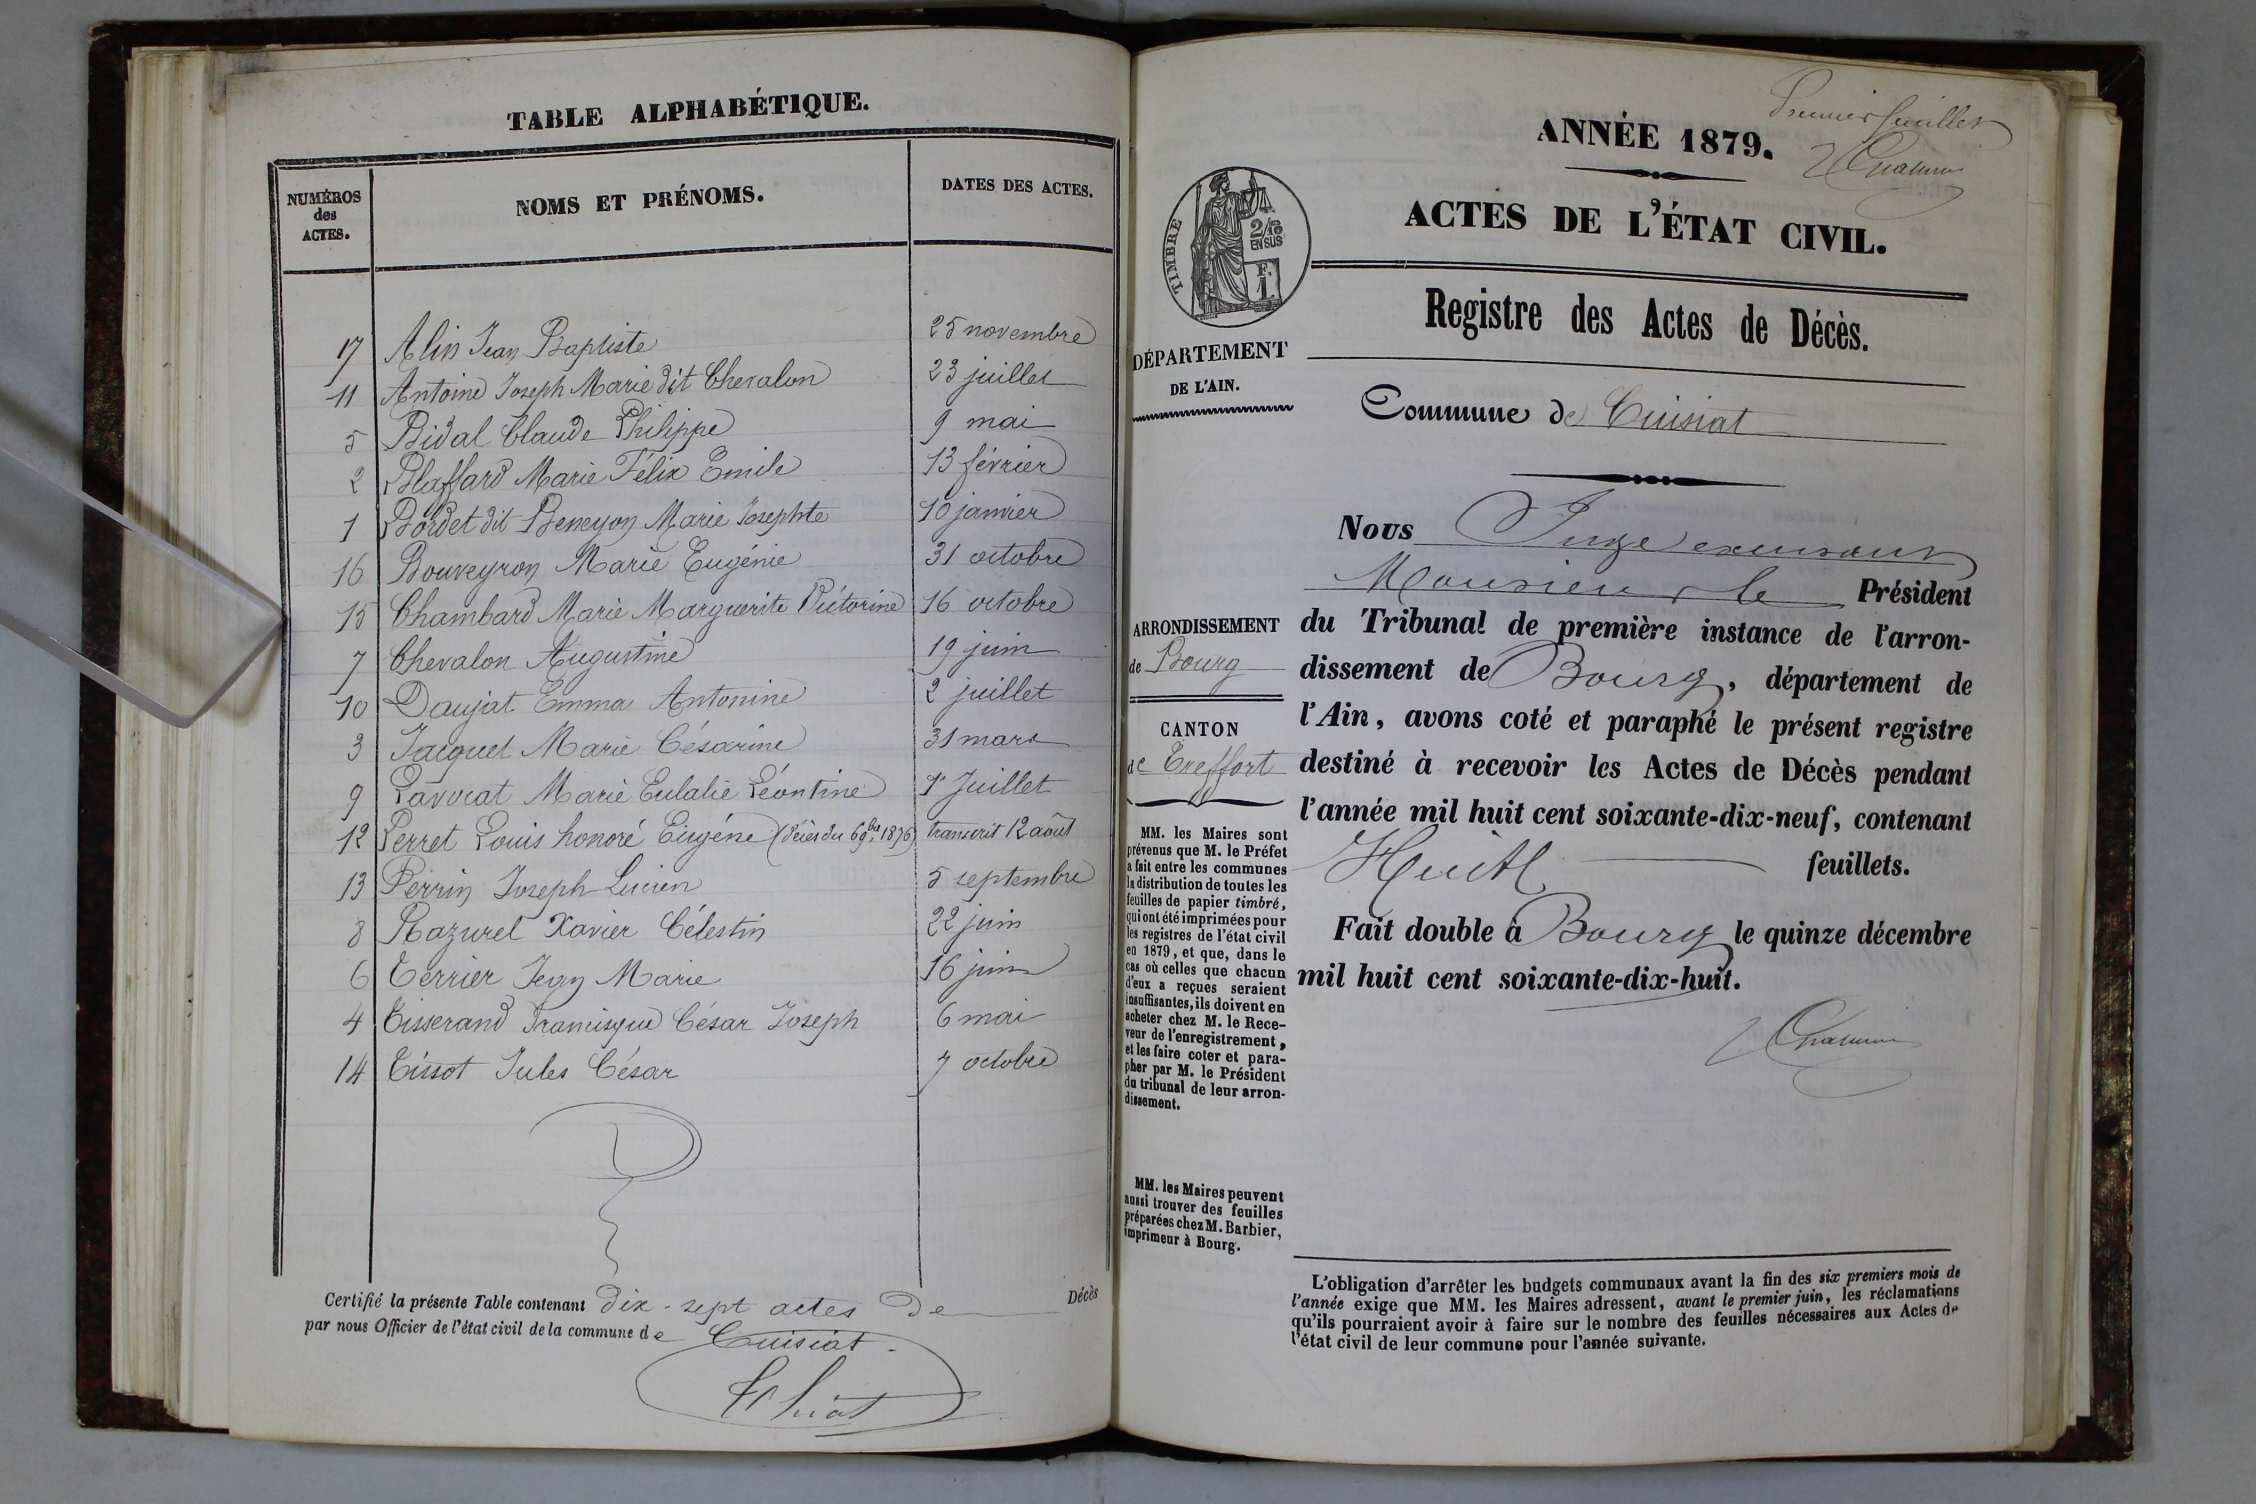 TABLE ALPHABÉTIQUE.
NUMÉROS
des
ACTES.
NOMS ET PRÉNOMS.
DATES DES ACTES.
17 Alin Jean Baptiste 25 novembre
11 Antoine Joseph Marie dit Chevalon 23 juillet
5 Bidal Claude Philippe 9 mai
2 Blaffard Marie Félix Emile 13 février
1 Bordet dit Beneyon Marie Josephte 10 janvier
16 Bouveyron Marie Eugénie 31 octobre
15 Chambard Marie Marguerite Victorine 16 octobre
7 Chevalon Augustine 19 juin
10 Daujat Emma Antonine 2 juillet
3 Jacquet Marie Césarine 31 mars
9 Lavocat Marie Eulalie Léontine 1r Juillet
12 Perret Louis honoré Eugéne (décès du 6 9bre 1876) transcrit 12 août
13 Perrin Joseph Lucien 5 septembre
8 Razurel Xavier Célestin 22 juin
6 Terrier Jean Marie 16 juin
4 Tisserand Francisque César Joseph 6 mai
14 Tissot Jules César 7 octobre
Certifié la présente Table contenant dix-sept actes de Décès
par nous Officier de l'état civil de la commune de Cuisiat
Premier feuillet
ANNÉE 1879.
ACTES DE L'ÉTAT CIVIL.
TIMBRE
2/10
EN SUS
F.
1.
Registre des Actes de Décès.
DÉPARTEMENT
DE L'AIN.
Commune de Cuisiat
Nous Juge
Monsieur le Président
du Tribunal de première instance de l'arron-
dissement de Bourg, département de
l'Ain, avons coté et paraphé le présent registre
destiné à recevoir les Actes de Décès pendant
l'année mil huit cent soixante-dix-neuf, contenant
Huit feuillets.
Fait double à Bourg le quinze décembre
mil huit cent soixante-dix-huit.
ARRONDISSEMENT
de Bourg
CANTON
de Treffort
MM. les Maires sont
prévenus que M. le Préfet
a fait entre les communes
la distribution de toutes les
feuilles de papier timbré,
qui ont été imprimées pour
les registres de l'état civil
en 1879, et que, dans le
cas où celles que chacun
d'eux a reçues seraient
insuffisantes, ils doivent en
acheter chez M. le Rece-
veur de l'enregistrement,
et les faire coter et para-
pher par M. le Président
du tribunal de leur arron-
dissement.
MM. les Maires peuvent
aussi trouver des feuilles
préparées chez M. Barbier,
imprimeur à Bourg.
L'obligation d'arrêter les budgets communaux avant la fin des six premiers mois de
l'année exige que MM. les Maires adressent, avant le premier juin, les réclamations
qu'ils pourraient avoir à faire sur le nombre des feuilles nécessaires aux Actes de
l'état civil de leur commune pour l'année suivante.